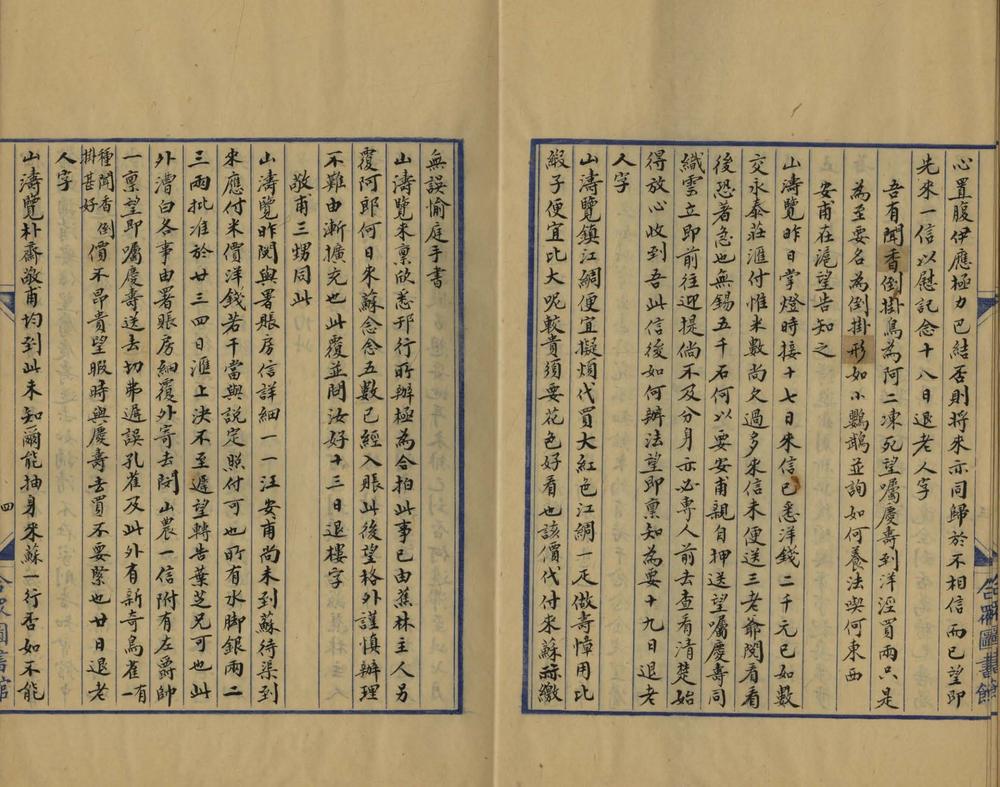 心置腹伊應極力巴結否則將來亦同歸於不相信而已望即
先來一信以慰記念十八日退老人字
吾有聞香倒掛鳥為阿二凍死望囑慶壽到洋涇買兩只是
為至要名為倒掛形如小鸚鵡並詢如何養法喫何東西
安甫在滬望告知之
山濤覽昨日掌燈時接十七日來信已悉洋錢二千元已如數
交永泰莊滙付惟米數尚欠過多來信未便送三老爺閱看看
後恐著急也無錫五千石何以要安甫親自押送望囑慶壽同
織雲立即前往迎提倘不及分身亦必專人前去查看清楚始
得放心收到吾此信後如何辦法望即稟知為要十九日退老
人字
山濤覽鎮江綢便宜擬煩代買大紅色江綢一疋做壽幛用比
緞子便宜比大呢較貴須要花色好看也該價代付來蘇繳
無誤愉庭手書
山濤覽來稟欣悉邗行所辦極為合拍此事已由蕉林主人另
覆阿郎何日來蘇念念五數已經入賬此後望格外謹慎辦理
不難由漸擴充也此覆並問汝好十三日退樓字
敬甫三甥同此
山濤覽昨閱與署賬房信詳細一一江安甫尚未到蘇待渠到
來應付米價洋錢若干當與說定照付可也所有水腳銀兩二
三兩批准於廿三四日滙上決不至遲望轉告葉芝兄可也此
外漕白各事由署賬房細覆外寄去閱山農一信附有左爵帥
一稟望即囑慶壽送去切弗遲誤孔雀及此外有新奇鳥雀一有
種聞香倒
掛甚好價不昂貴望暇時與慶壽去買不要緊也廿日退老
人字
山濤覽朴齋敬甫均到此未知爾能抽身來蘇一行否如不能
四
合眾圖書館